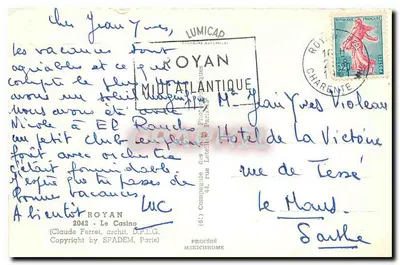 Cher Jean Yves,
les vacances sont
agréables et ce qui
compte le plus nous
avons un soleil magnifique
nous avons été avec
Nicole à El Rancho
un petit club en plein
font avec orchestre
c'était formidable
J'espère que tu passes de
bonnes vacances
A bientôt LUC
LUMICAP
ROYAN
MIDI ATLANTIQUE
ROYAN
CHARENTE
Mr Jean Yves Violeau
Hotel de la Victoire
rue de Tessé
le Mans
Sarthe
ROYAN
2042 - Le Casino
(Claude Ferret, archt, D.P.L.G.
Copyright by SPADEM, Paris)
PROCÉDÉ
MEXICHROME